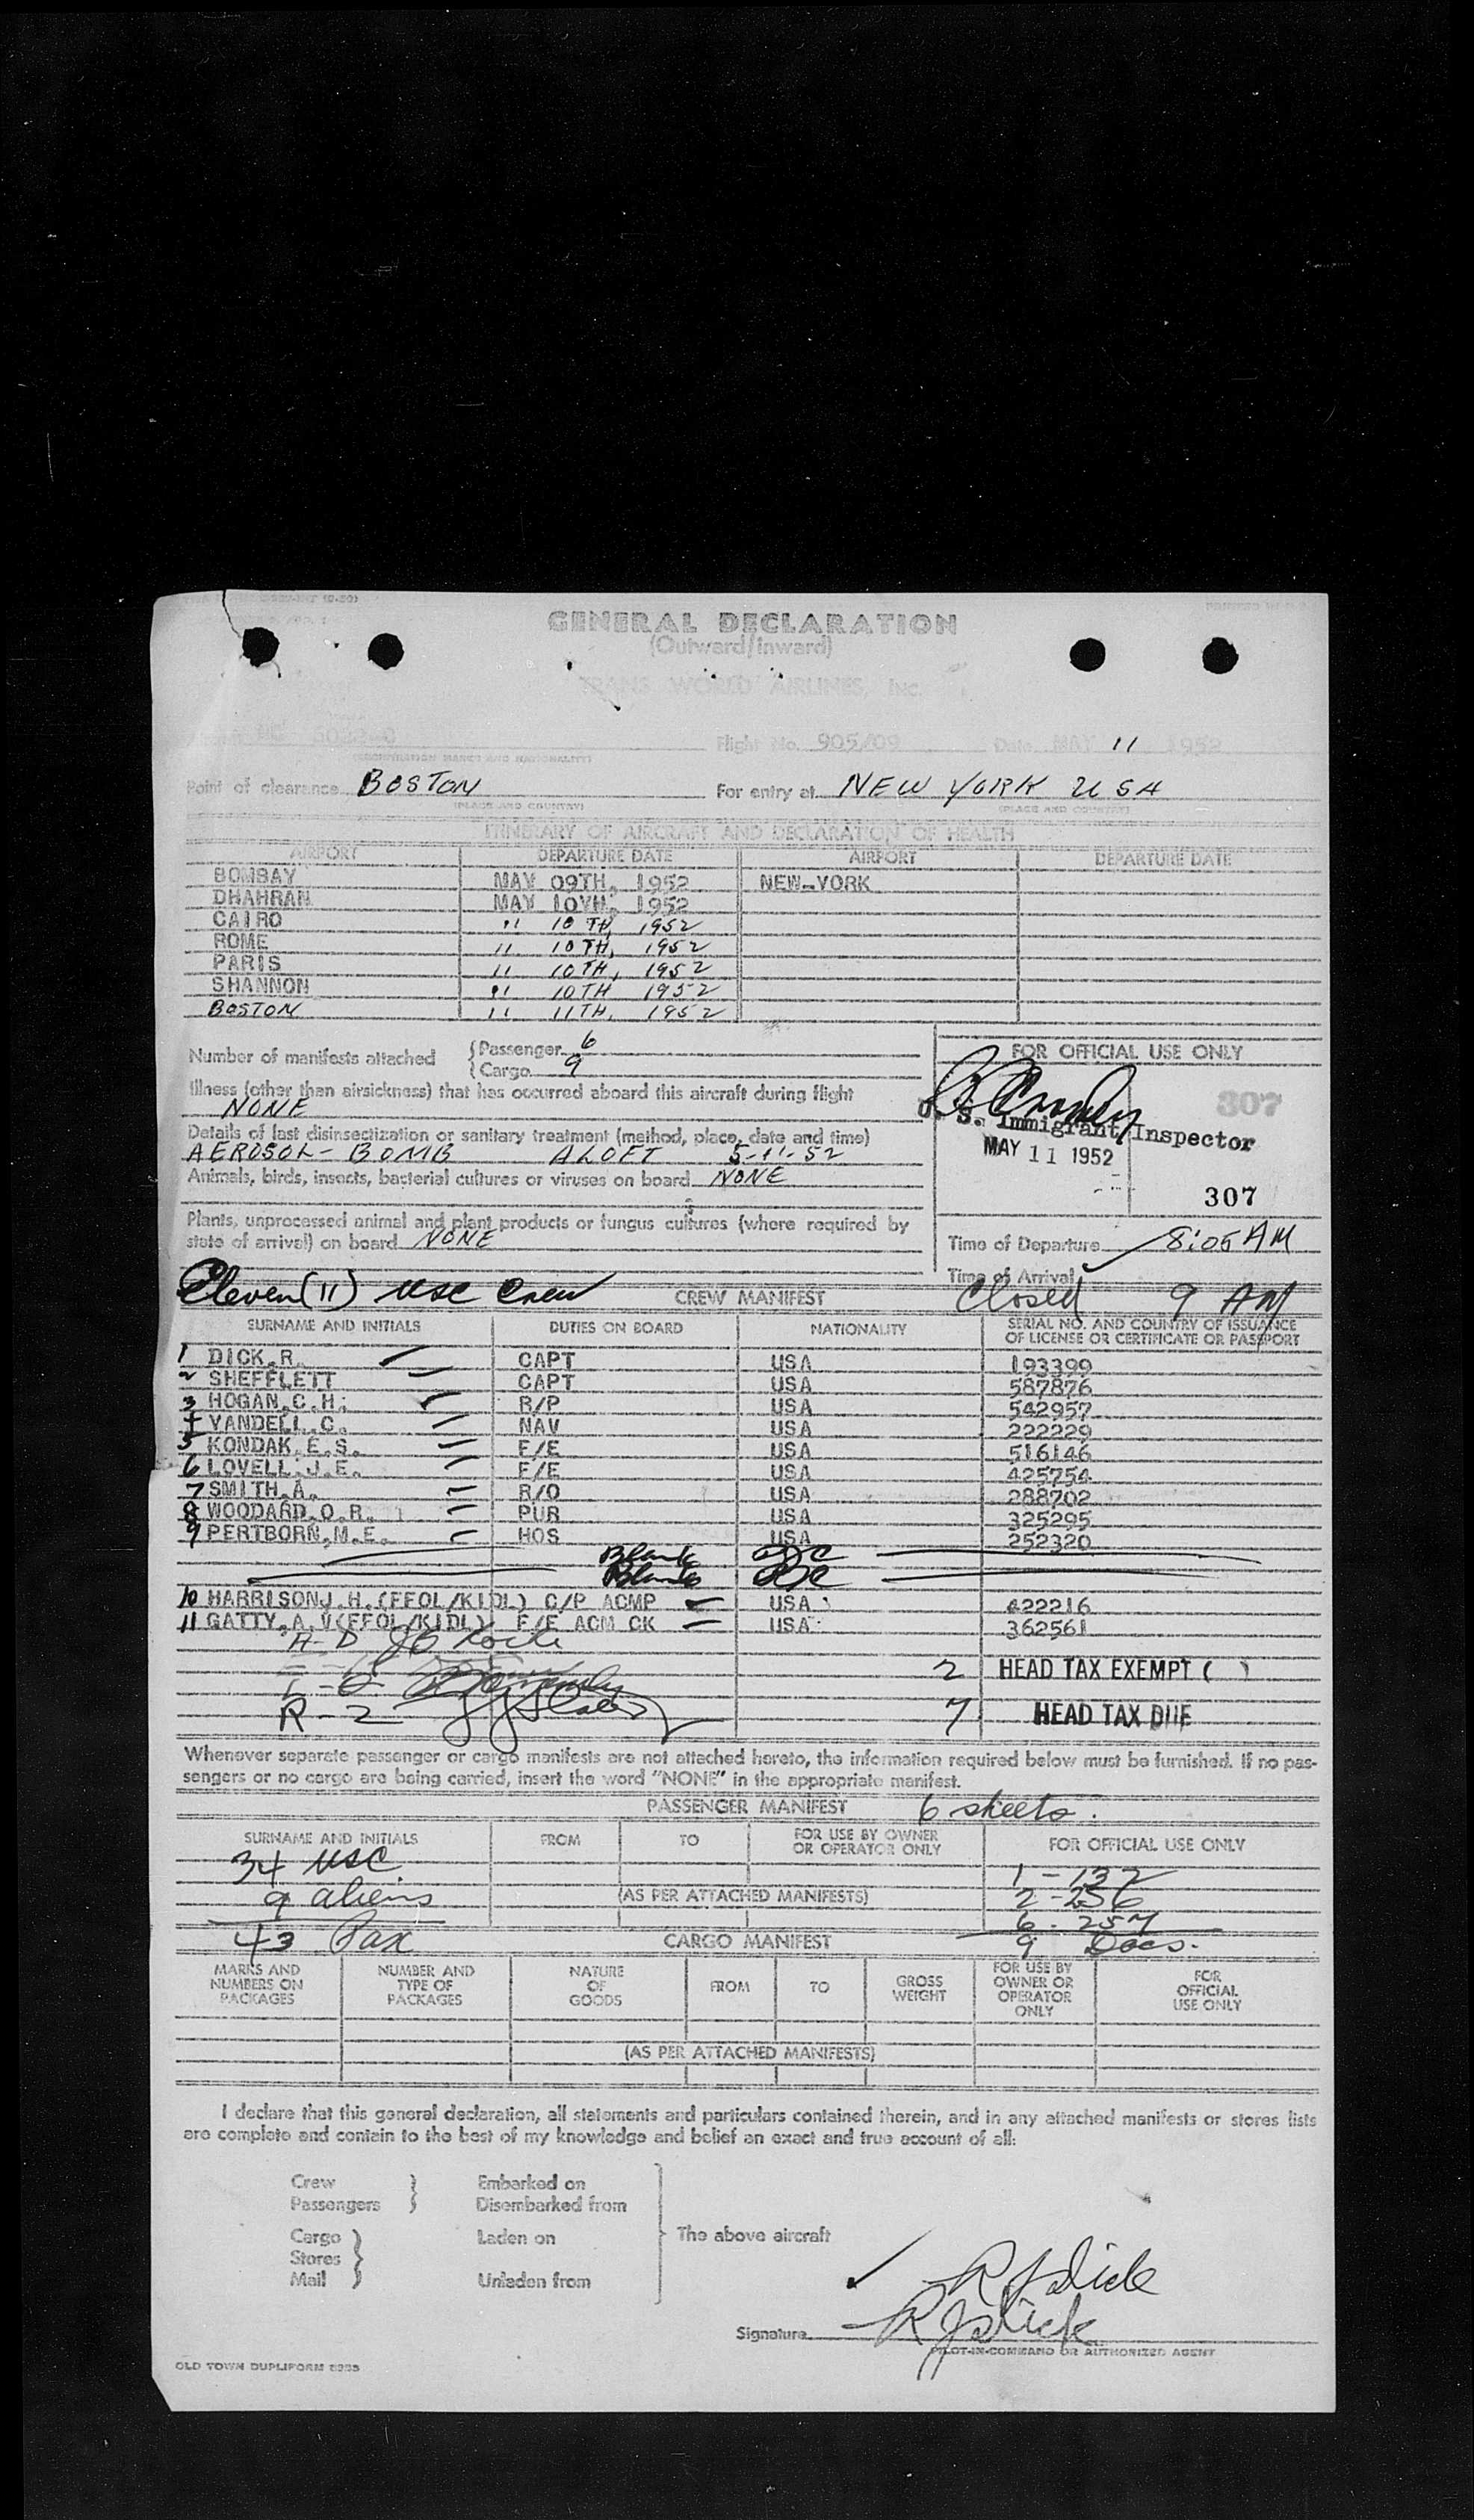 GENERAL DECLARATION
(Outward/Inward)
TRANS WORLD AIRLINES, INC.
Flight No. 905/09 Date MAY 11 1952
Point of clearance BOSTON For entry at NEW YORK USA
(PLACE AND COUNTRY) (PLACE AND COUNTRY)
ITINERARY OF AIRCRAFT AND DECLARATION OF HEALTH
AIRPORT DEPARTURE DATE AIRPORT DEPARTURE DATE
BOMBAY MAY 09TH, 1952 NEW YORK
DHAHRAN MAY 10YH, 1952
CAIRO " 10TH, 1952
ROME " 10TH, 1952
PARIS " 10TH, 1952
SHANNON " 10TH 1952
BOSTON " 11TH, 1952
Number of manifests attached { Passenger 6
{ Cargo 9
FOR OFFICIAL USE ONLY
Illness (other than airsickness) that has occurred aboard this aircraft during flight
NONE
307
U. S. Immigrant Inspector
MAY 11 1952
307
Details of last disinsectization or sanitary treatment (method, place, date and time)
AEROSOL-BOMB ALOFT 5-11-52
Animals, birds, insects, bacterial cultures or viruses on board NONE
Plants, unprocessed animal and plant products or fungus cultures (where required by
state of arrival) on board NONE
Time of Departure 8:05 AM
Time of Arrival
Eleven (11) USC Crew CREW MANIFEST Closed 9 AM
SURNAME AND INITIALS DUTIES ON BOARD NATIONALITY SERIAL NO. AND COUNTRY OF ISSUANCE
OF LICENSE OR CERTIFICATE OR PASSPORT
1 DICK,R. CAPT USA 193399
2 SHEFFLETT CAPT USA 587876
3 HOGAN,C.H. R/P USA 542957
4 YANDELL,C. NAV USA 222229
5 KONDAK,E.S. F/E USA 516146
6 LOVELL,J.E. F/E USA 425754
7 SMITH,A. R/O USA 288702
8 WOODARD,O.R. PUR USA 325295
9 PERTBORN,M.E. HOS USA 252320
Blank
Blank
10 HARRISONJ.H.(FFOL/KIDL) C/P ACMP USA 422216
11 GATTY,A.V(FFOL/KIDL) F/E ACM CK USA 362561
R-2
2 HEAD TAX EXEMPT ( )
7 HEAD TAX DUE
Whenever separate passenger or cargo manifests are not attached hereto, the information required below must be furnished. If no pas-
sengers or no cargo are being carried, insert the word "NONE" in the appropriate manifest.
PASSENGER MANIFEST 6 sheets.
SURNAME AND INITIALS FROM TO FOR USE BY OWNER
OR OPERATOR ONLY FOR OFFICIAL USE ONLY
34 USC 1-132
9 aliens (AS PER ATTACHED MANIFESTS) 2-256
6-257
43 Pax CARGO MANIFEST 9 Docs.
MARKS AND
NUMBERS ON
PACKAGES
NUMBER AND
TYPE OF
PACKAGES
NATURE
OF
GOODS
FROM
TO
GROSS
WEIGHT
FOR USE BY
OWNER OR
OPERATOR
ONLY
FOR
OFFICIAL
USE ONLY
(AS PER ATTACHED MANIFESTS)
I declare that this general declaration, all statements and particulars contained therein, and in any attached manifests or stores lists
are complete and contain to the best of my knowledge and belief an exact and true account of all:
Crew Embarked on
Passengers Disembarked from
Cargo Laden on The above aircraft
Stores
Mail Unladen from
R J Dick
Signature R J Dick
PILOT-IN-COMMAND OR AUTHORIZED AGENT
OLD TOWN DUPLIFORM